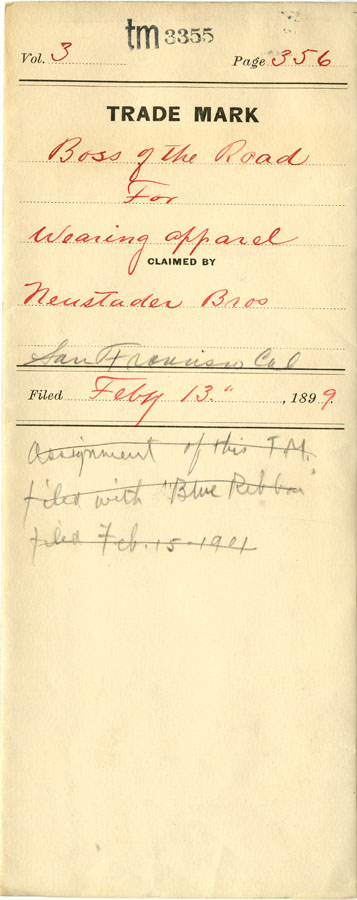 tm 3355
Vol. 3 Page 356
TRADE MARK
Boss of the Road
For
Wearing apparel
CLAIMED BY
Neustader Bros
San Francisco Cal
Filed Feby 13" , 1899.
Assignment of this T.M.
filed with "Blue Ribbon"
filed Feb. 15-1901